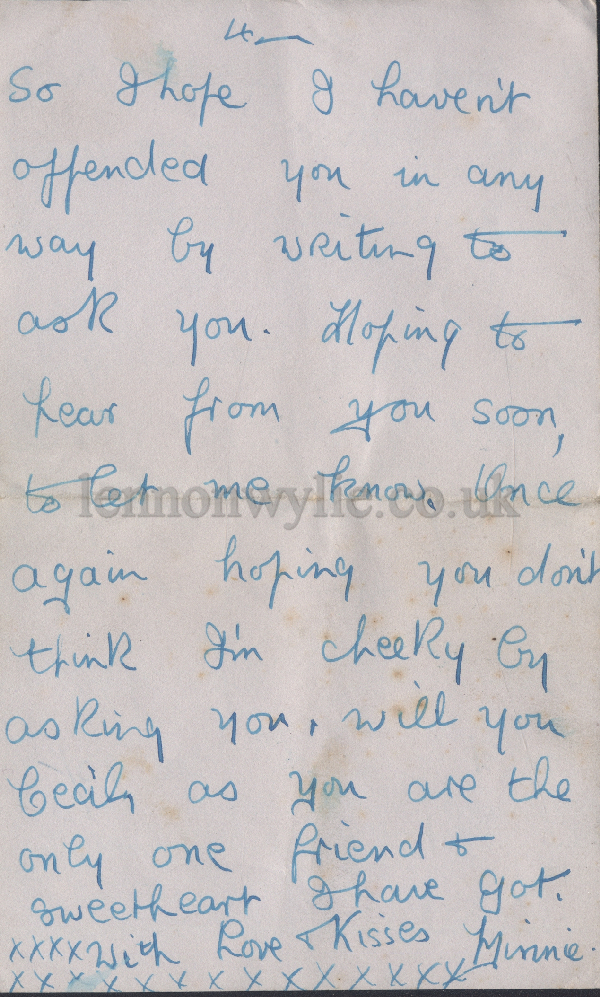 4
So I hope I haven't
offended you in any
way by writing to
ask you. Hoping to
hear from you soon,
to let me know. Once
lennonwylie.co.uk
again hoping you don't
think I'm cheeky by
asking you, will you
Cecily as you are the
only one friend &
sweetheart I have got.
xxxx with Love & Kisses Minnie.
x x x x x x x x x x x x x x